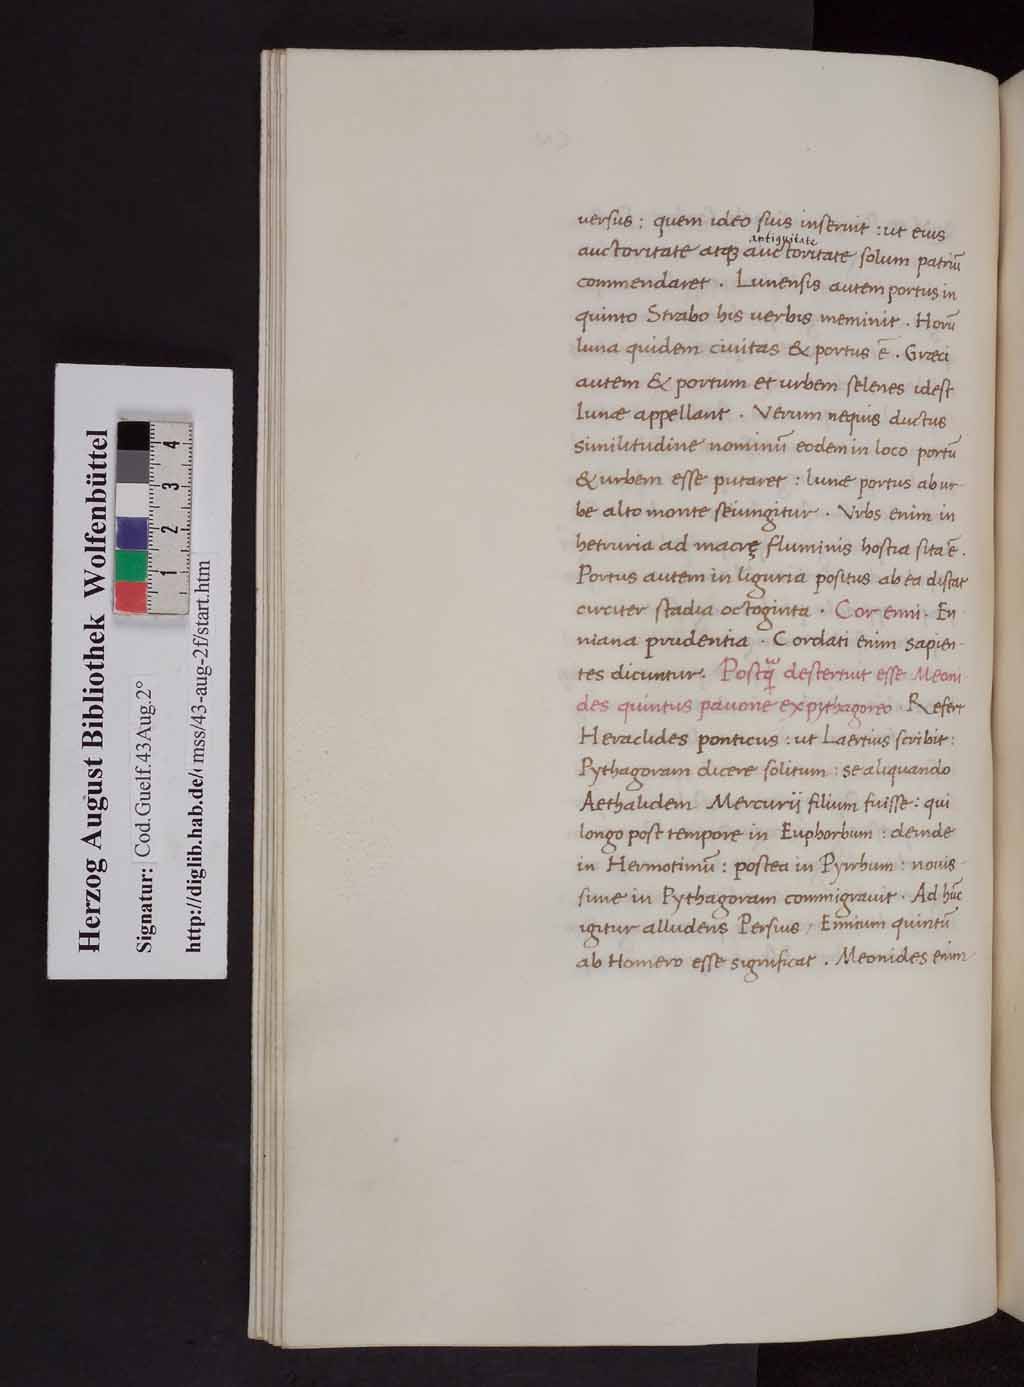 versus : quem ideo suis inseruit : ut eius
antiquitate
auctoritate atqȝ auctoritate solum patriũ
commendaret . Lunensis autem portus in
quinto Strabo his verbis meminit . Horũ
luna quidem civitas & portus ẽ . Græci
autem & portum et urbem selenes idest
lunæ appellant . Verum nequis ductus
similitudine nominũ eodem in loco portũ
& urbem esse putaret : lunæ portus ab ur-
be alto monte seiungitur . Urbs enim in
hetruria ad macrę fluminis hostia sita ẽ .
Portus autem in liguria positus ab ea distat
circiter stadia octoginta . Cor enni . En
niana prudentia . Cordati enim sapien-
tes dicuntur . Postq̃ destertuit esse Meoni
des quintus pavone ex pythagoreo . Refert
Heraclides ponticus : ut Laertius scribit :
Pythagoram dicere solitum : se aliquando
Aethalidem Mercurij filium fuisse : qui
longo post tempore in Euphorbum : deinde
in Hermotimũ : postea in Pyrrhum : novis-
sime in Pythagoram commigravit . Ad hũc
igitur alludens Persius / Ennium quintũ
ab Homero esse significat . Meonides enim
Herzog August Bibliothek Wolfenbüttel
Signatur: Cod.Guelf.43Aug.2°
http://diglib.hab.de/ mss/43-aug-2f/start.htm
1 2 3 4